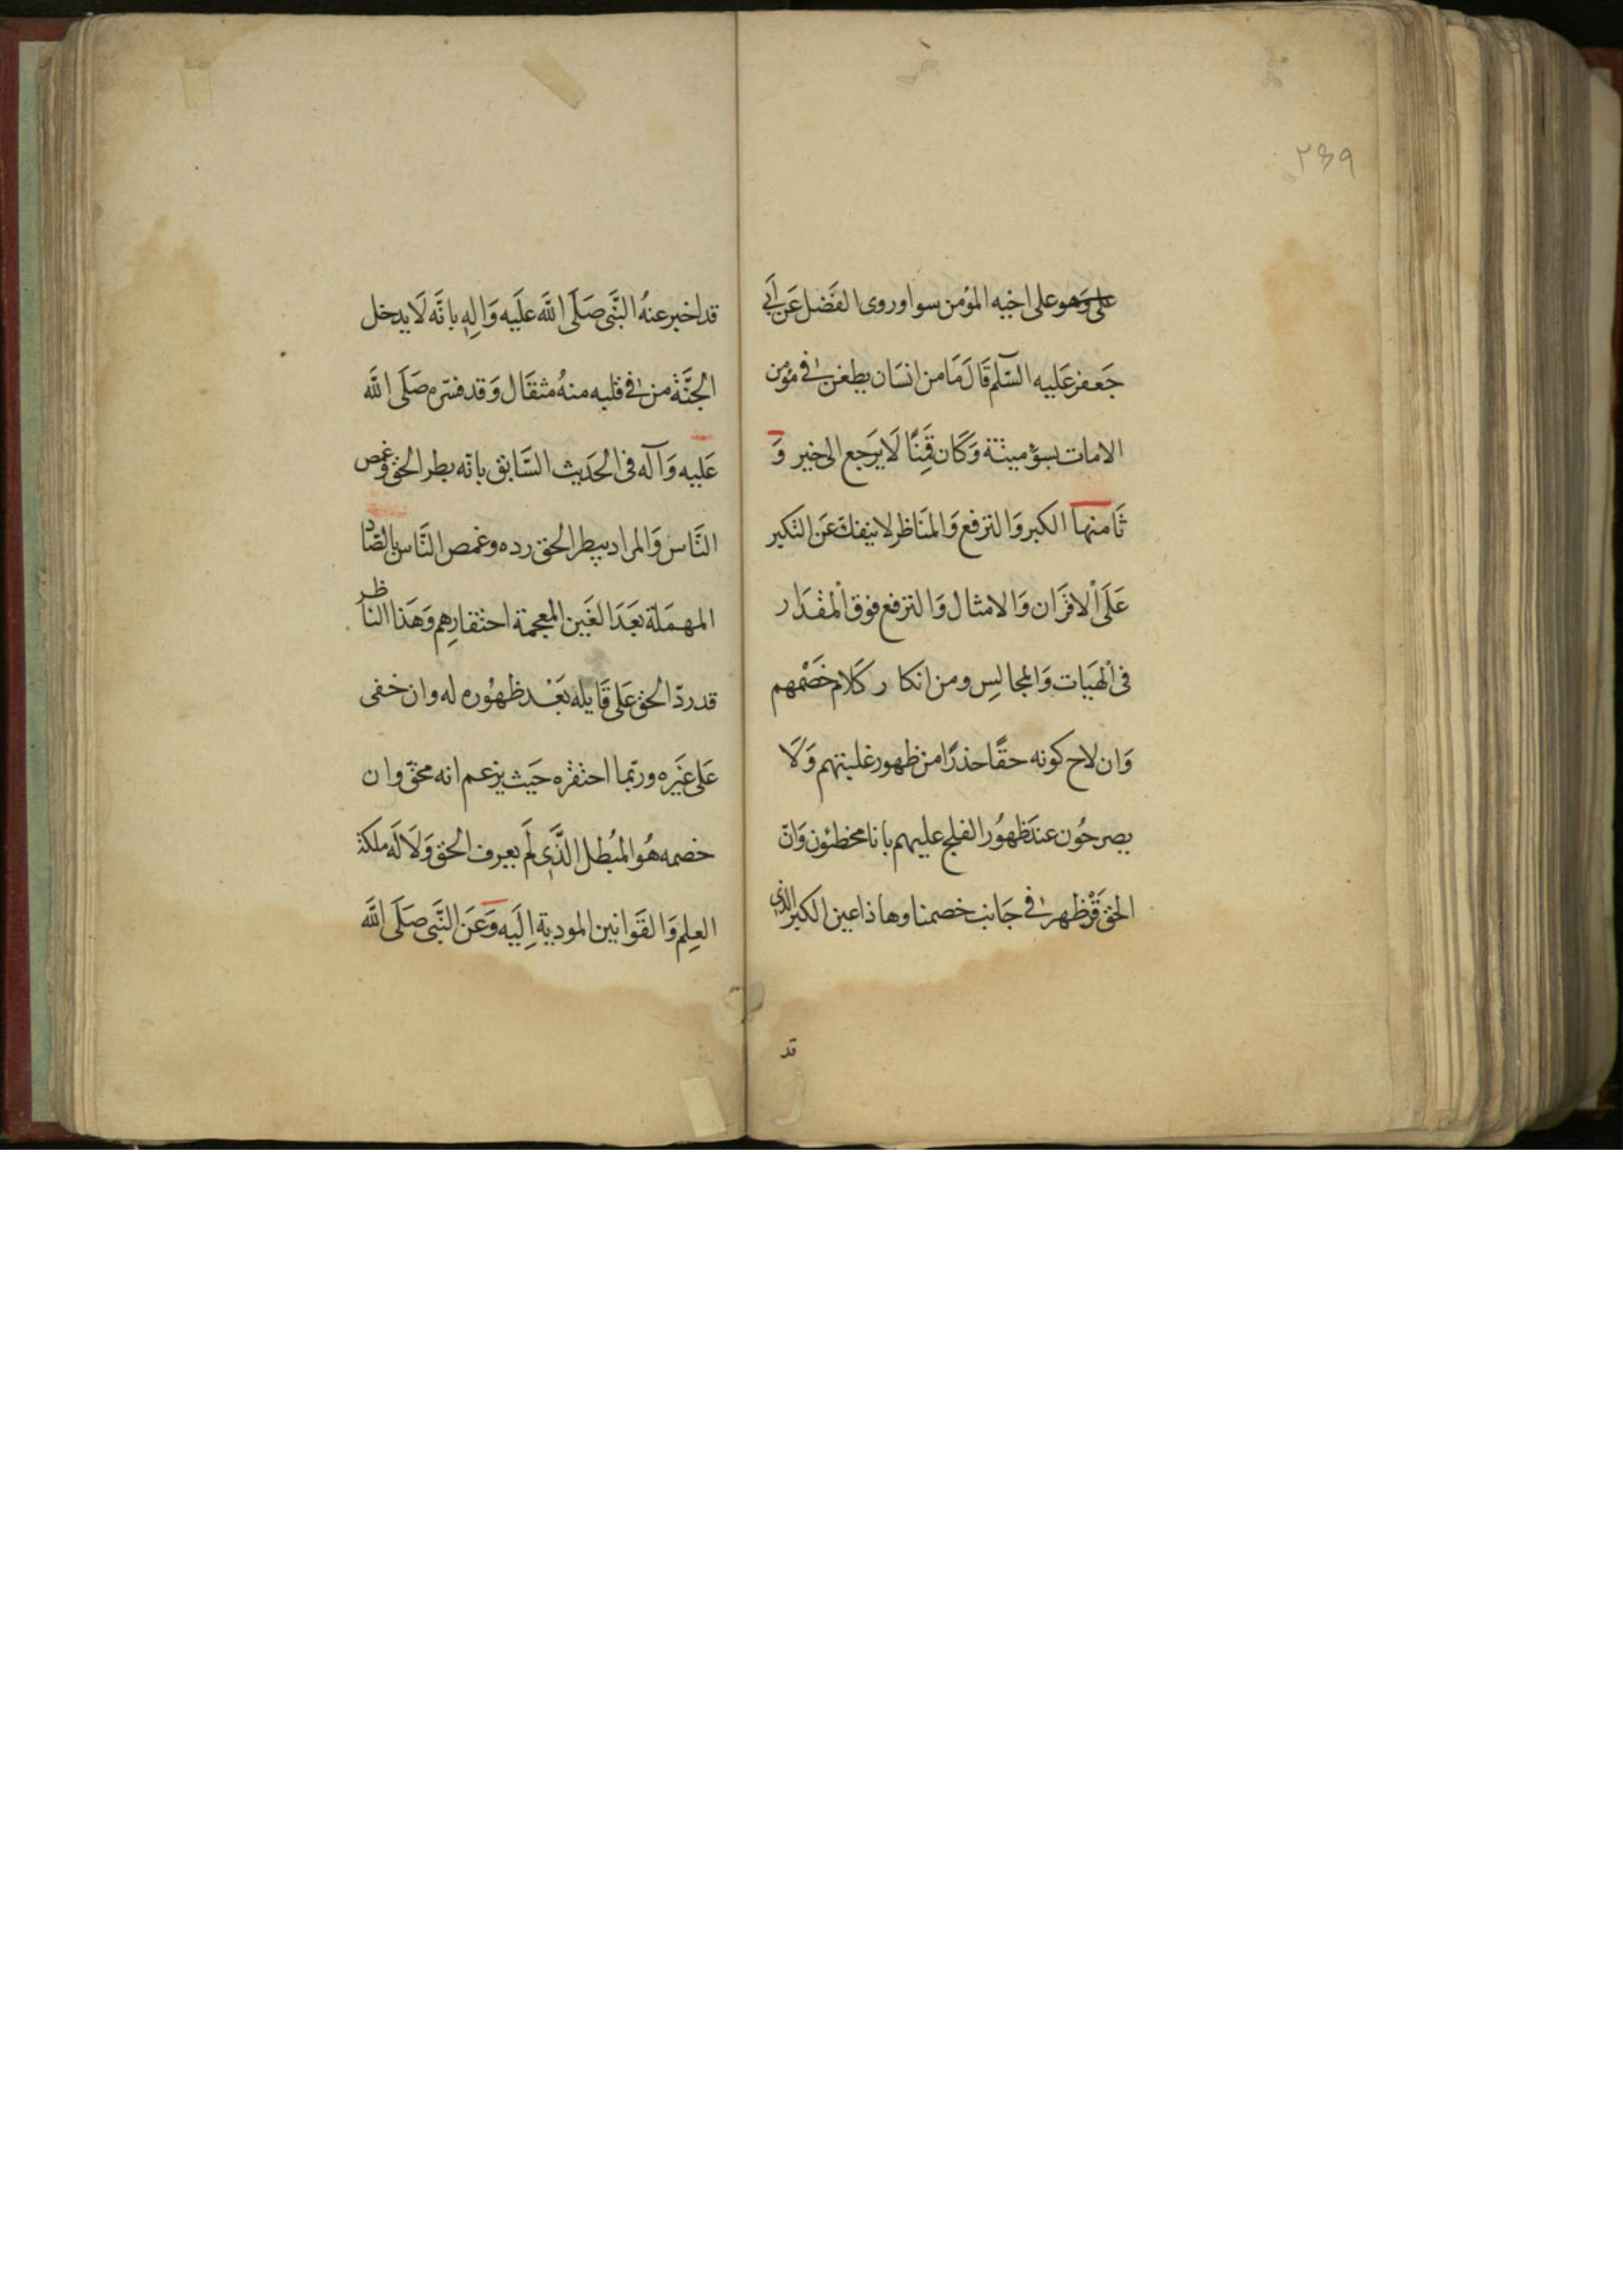 ٢٤٩
على وهو على اخيه المؤمن سوا وروى الفَضل عَن اَبى
جَعفر عَليه السّلم قَالَ مَا من انسَان يطعن فى عين مؤمن
الا مات بسوء ميتة وَكَان قَمِنًا لَا يَرَجع الى خير وَ
ثَامنها الكبر وَالترفع وَالمنَاظر لا ينفك عَن التكبر
عَلَى اْلاقَران وَالامثال وَالترفع فوق اْلمقدَار
فى اْلهَيَات وَالمجالسِ ومن انكار كَلام خَصْمهم
وَان لاح كونه حقًا حذرًا من ظهور غلبتهم وَلَا
يصرحُون عندَ ظهُور الفلج عليهم بانا مخطئون وَانّ
الحق قَدْ ظهر فى جَانب خصمنا وهاذا عين الكبر الذى
قد
قد اخبر عنهُ النَّبَى صَلَى اللَّه علَيه وَالِهِ بانَّه لَا يدخل
الجنَّة من فى قلبه منهُ مثقَال وَقد فسّره صَلَى اللَّه
عَليه وَآله فى الحَديث السَّابق بانّه بطر الحق وغمص
النَّاس وَالمراد ببطر الحق رده وغمص النَّاس بالصَّاد
المهمَلة بَعَدَ الغَين المعجمة احتقارِهم وَهَذا الناظر
قد ردّ الحق عَلى قَايله بَعْد ظهُوره له وان خفى
عَلى غَيَره وربّما احتقرَه حَيَث يزعم انه محقّ وان
خصمه هُو المُبُطل الذَّى لَم يعرف الحق وَلَا لَه ملكة
العِلم وَالقَوانين المودية اِلَيه وَعَن النَّبَى صَلَى اللَّه